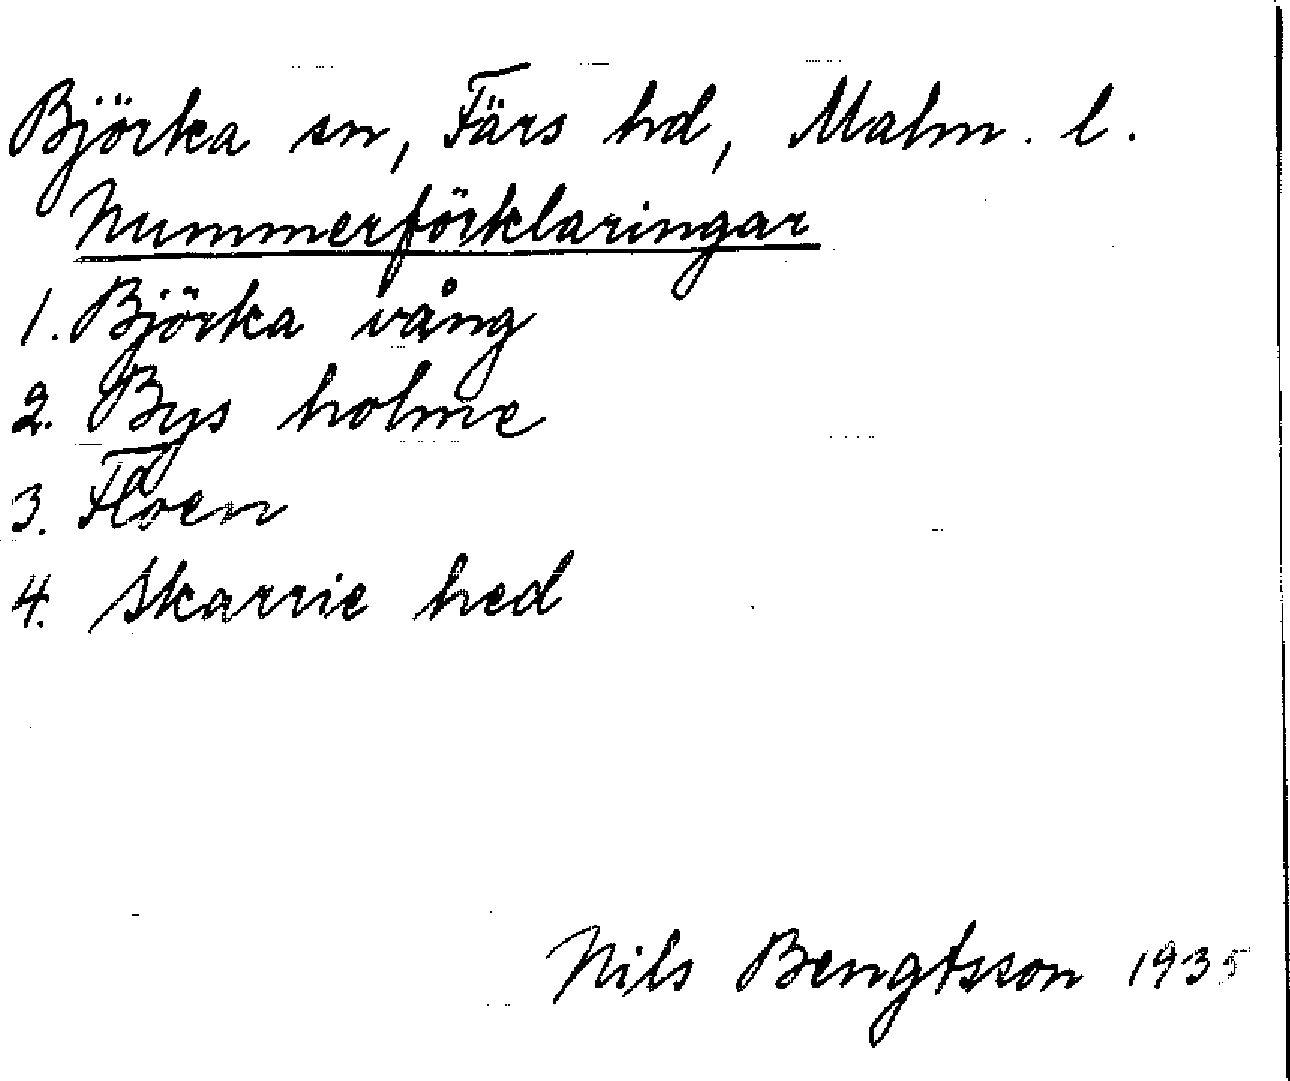 Björka sn, Färs hd, Malm. l.
Nummerförklaringar
1. Björka vång
2. Bys holme
3. Floen
4. Skarrie hed
Nils Bengtsson 1935